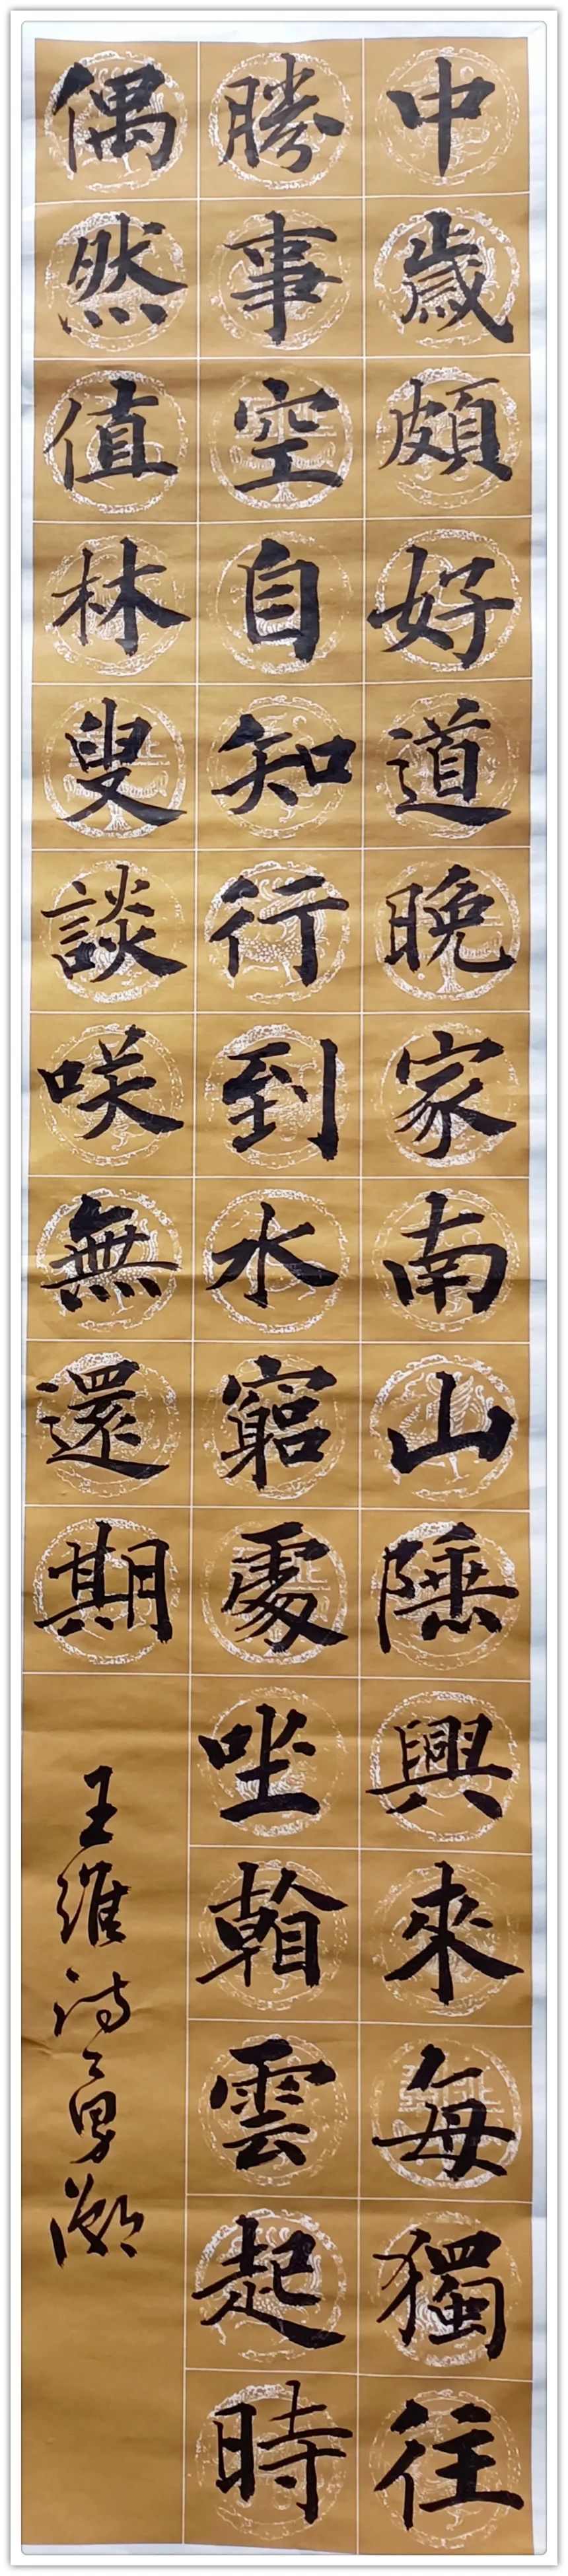 中歲頗好道晚家南山陲興來每獨往
勝事空自知行到水窮處坐看雲起時
偶然值林叟談咲無還期
王維詩